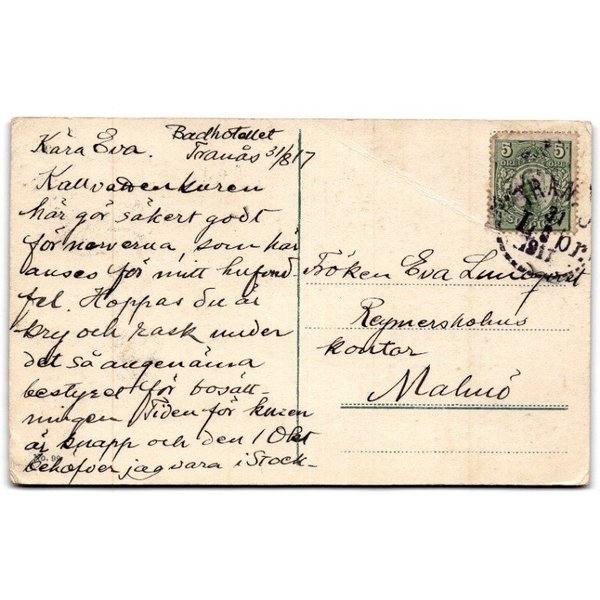 Badhotellet
Kära Eva. Tranås 31/8 17
Kallvattenkuren
här gör säkert godt
för nerverna, som här
anses för mitt hufvud
fel. Hoppas du är
kry och rask under
det så angenäma
bestyret för bosätt-
ningen Tiden för kuren
är knapp och den 1 Okt
behöfver jag vara i Stock-
No. 99
5 5
ÖRE ÖRE
TRANÅS
1917
Fröken Eva Lundqvist
Reymersholms
kontor
Malmö